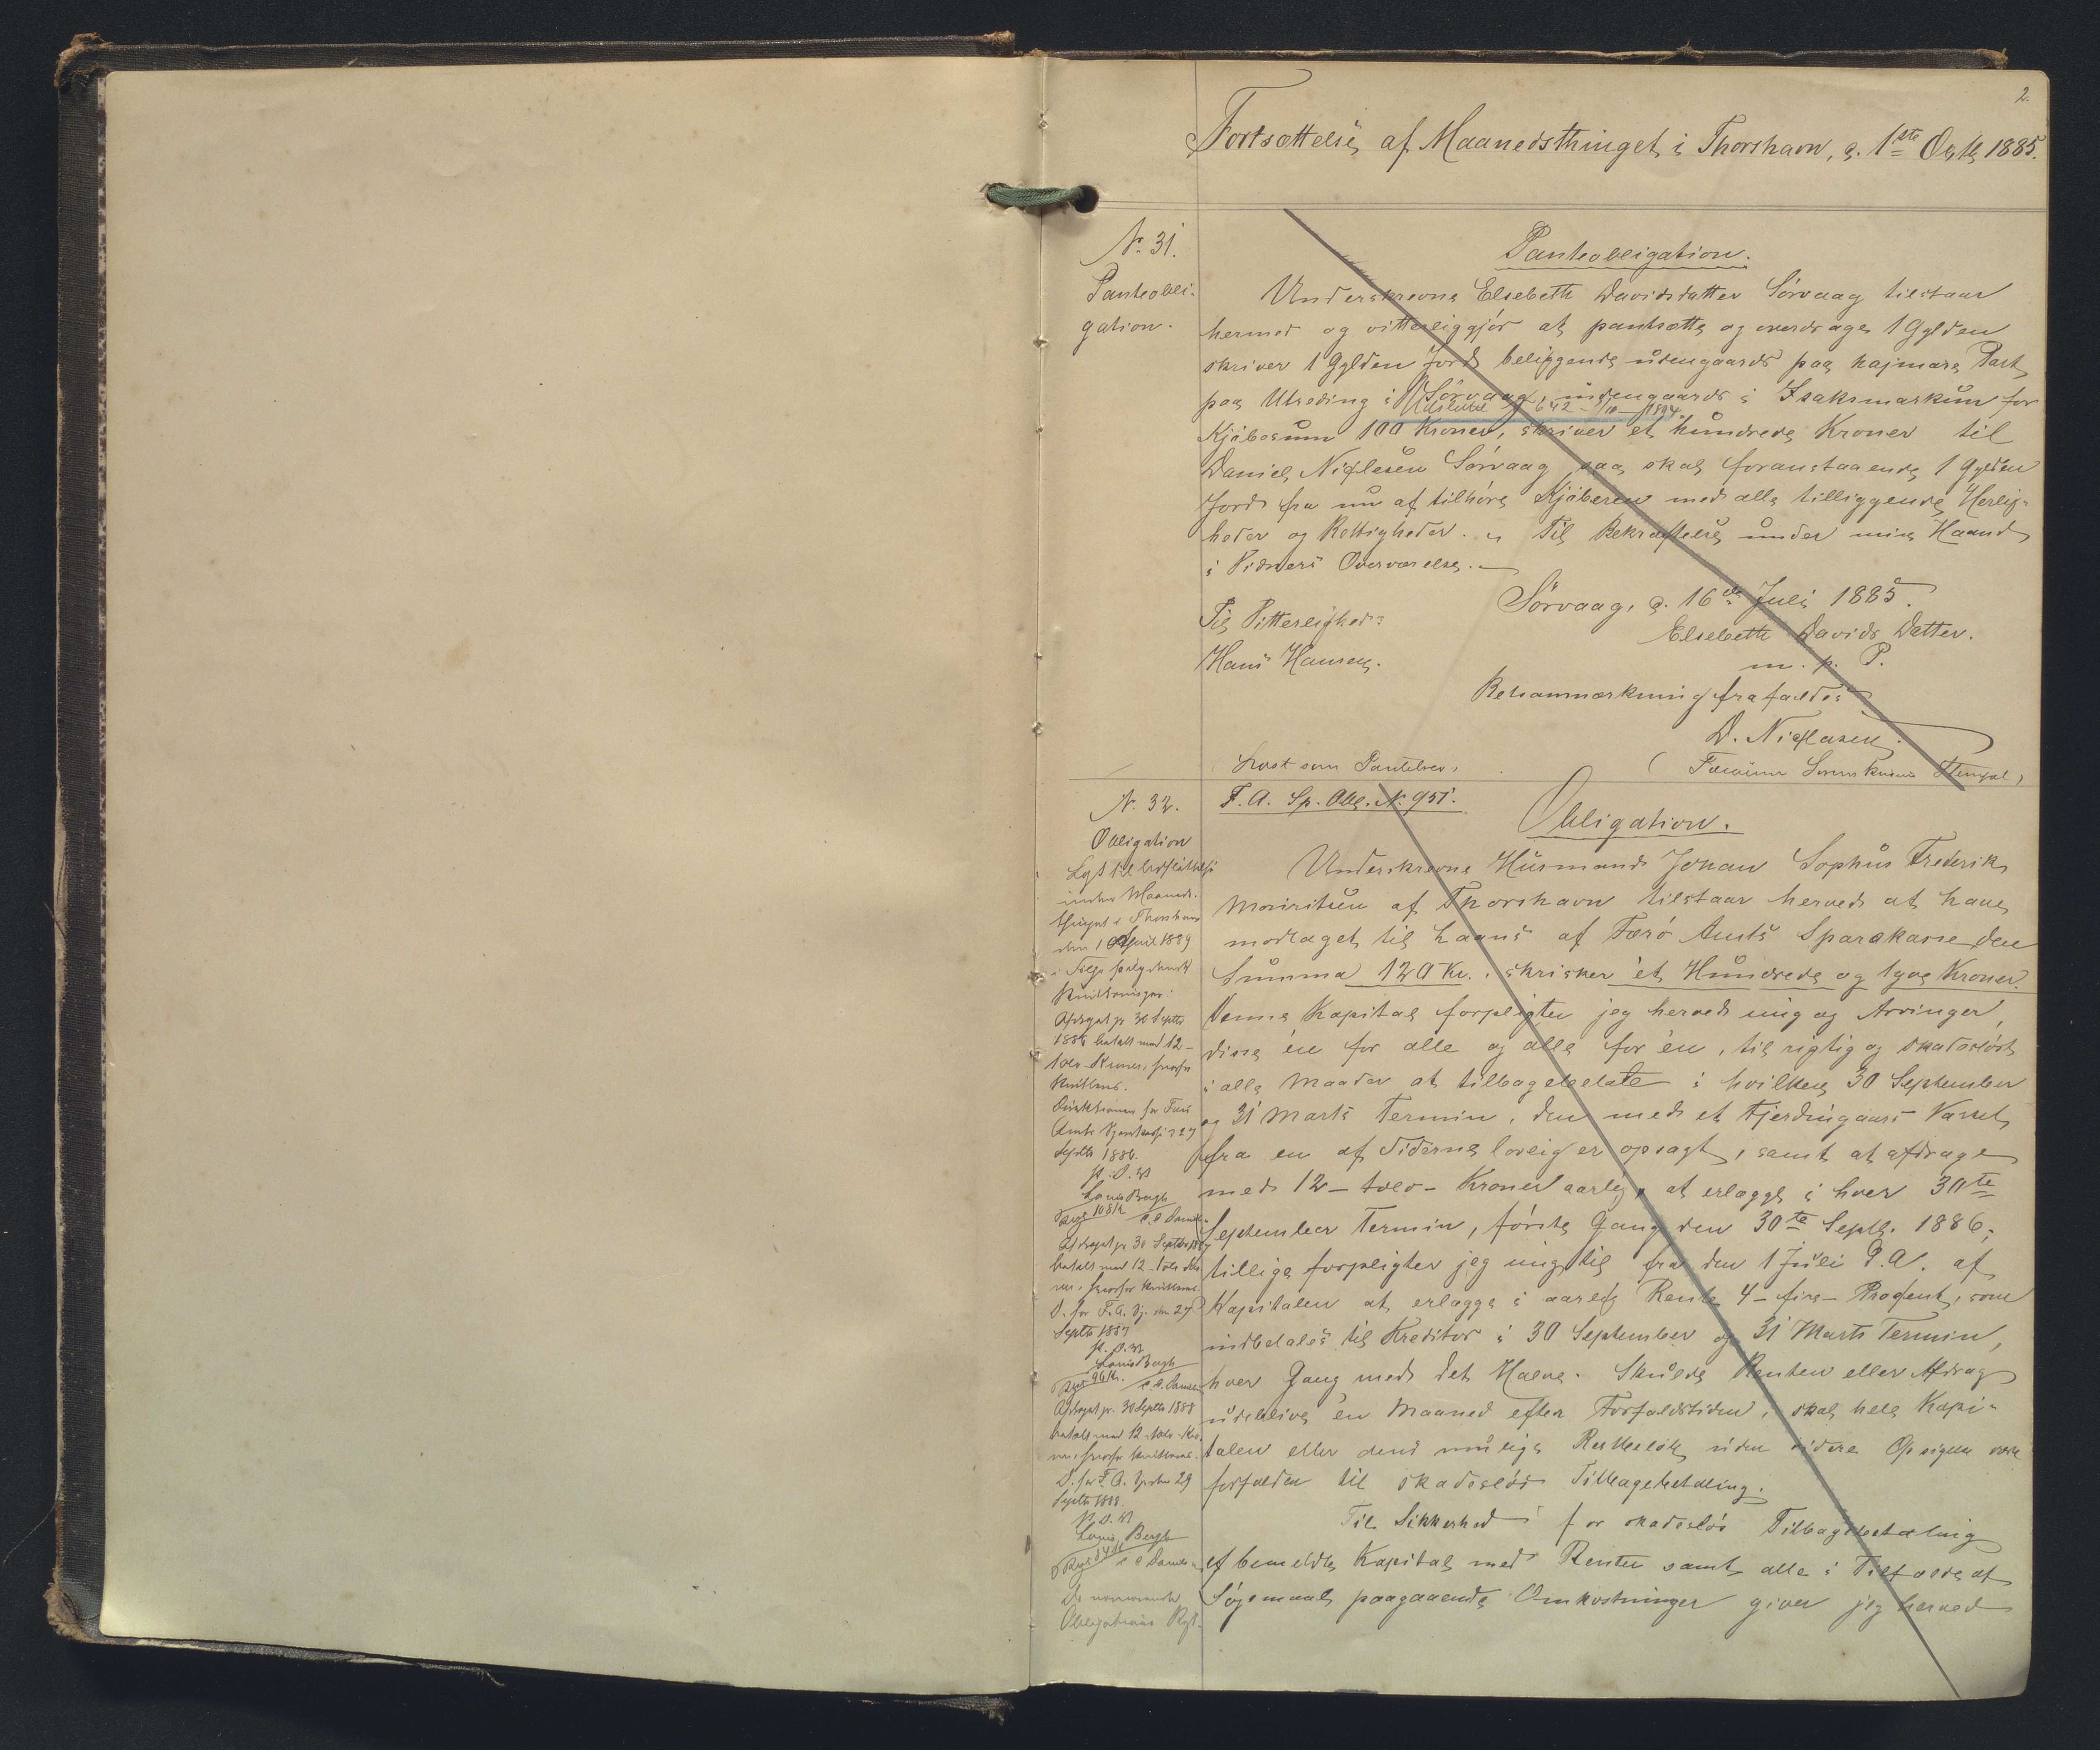 2.
Fortsættelse af Maanedsthinget i Thorshavn, d. 1ste Octb 1885.
Nr. 31.
Panteobli-
gation.
Panteobligation.
Underskrevne Elsebeth Davidsdatter Sörvaag tilstaar
hermed og vitterliggjör at pantsætte og overdrage 1 Gylden
skriver 1 Gylden Jord beliggende udengaards paa hajmara Part
paa Utreding i Sörvaag, indengaards i Isaksmarkun for
Udslettet 642 1894.
Kjöbesum 100 Kroner, skriver et hundrede Kroner til
Daniel Niclasen Sörvaag saa skal foranstaaende 1 Gylden
Jord fra nu af tilhöre Kjöberen med alle tilliggende Herlig-
heder og Rettigheder. Til Bekræftelse under min Haand
i Vidners Overværelse.
Sörvaag, d. 16de Juli 1885.
Til Vitterlighed:
Elsebeth Davids Datter.
Hans Hansen.
m. p. P.
Retsanmærkning frafaldes
D. Niclasen.
Læst som Pantebrev.
Nr. 32.
Obligation
Lyst til Udslettelse
inden Maaneds-
thinget i Thorshavn
den 1 April 1889
i Følge paategnede
Kvitteringer:
Afdraget pr 30 Septbr
1886 betalt med 12-
tolv Kroner, hvorfor
kvitteres.
Direktionen for Færø
Amts Sparekasse d 27
Septbr 1886.
p. D. V.
Louis Bergh
Rest 108 Kr.
Afdraget pr 30 Septbr 1887
betalt med 12 tolv Kro
ner, hvorfor kvitteres.
D. for F. A. Sp. den 27
Septbr 1887
p. D. V.
Louis Bergh
Rest 96 Kr.
Afdraget pr. 30 Septbr 1888
betalt med 12 tolv Kro-
ner, hvorfor kvitteres.
D. for F. A. Sp. den 29
Septbr 1888.
p. D. V.
Louis Bergh
Rest 84 Kr
Da nærværende
Obligations
F. A. Sp. Obl. Nr 951.
Obligation.
Underskrevne Husmand Johan Sophus Frederik
Mouritsen af Thorshavn tilstaar herved at have
modtaget til Laans af Færö Amts Sparekasse den
Summa 120 Kr., skriver et Hundrede og tyve Kroner.
Denne Kapital forpligter jeg herved mig og Arvinger,
disse én for alle og alle for én, til rigtig og skadeslöst
i alle Maader at tilbagebetale i hvilken 30 September
og 31 Marts Termin, den med et Fjerdingaars Varsel
fra en af Siderne lovlig er opsagt, samt at afdrage
med 12 - tolv - Kroner aarlig, at erlægge i hver 30te
September Termin, förste Gang den 30te Septb. 1886;
tillige forpligter jeg mig til fra den 1 Juli d. A. af
Kapitalen at erlægge i aarlig Rente 4 - fire - Procent, som
indbetales til Kreditor i 30 September og 31 Marts Termin,
hver Gang med det Halve. Skulde Renten eller Afdrag
udeblive én Maaned efter Forfaldstiden, skal hele Kapi-
talen eller dens mulige Restbelöb uden videre Opsigelse være
forfalden til skadeslös Tilbagebetaling.
Til Sikkerhed for skadeslös Tilbagebetaling
af bemeldte Kapital med Renter samt alle i Tilfælde af
Sögsmaal paagaaende Omkostninger giver jeg herved